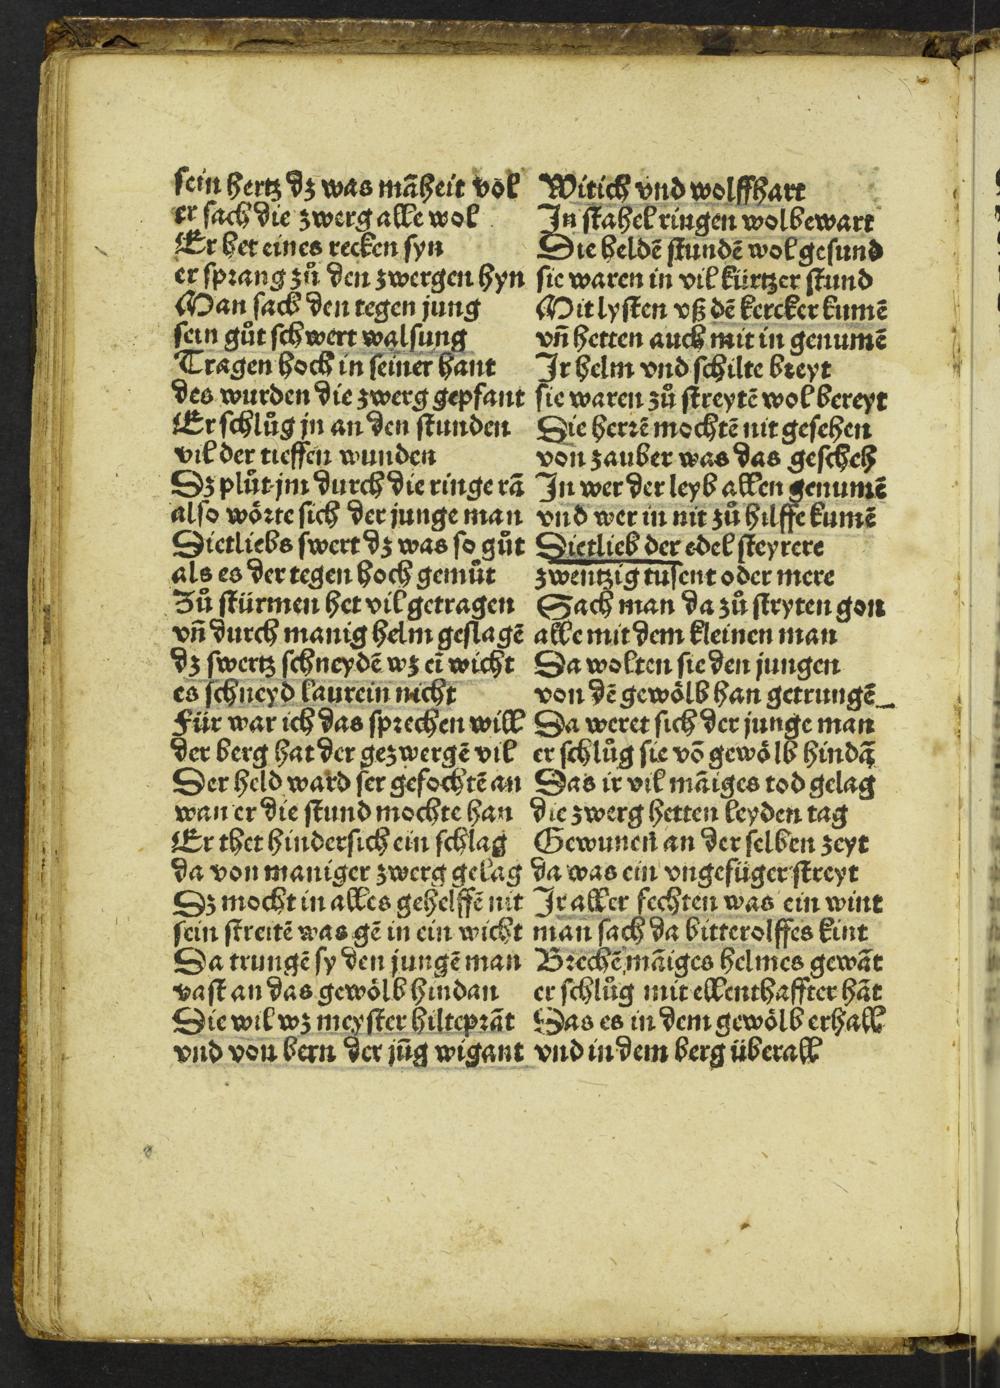 sein hertz dz was mãheit vol
er sach die zwerg alle wol
Er het eines recken syn
er sprang zů den zwergen hyn
Man sach den tegen jung
sein gůt schwert walsung
Tragen hoch in seiner hant
des wurden die zwerg gepfant
Er schlůg jn an den stunden
vil der tieffen wunden
Dz plůt jm durch die ringe rã
also wörte sich der junge man
Dietliebs swert dz was so gůt
als es der tegen hoch gemůt
Zů stürmen het vil getragen
vñ durch manig helm geslagẽ
dz swertz schneydẽ wz eĩ wicht
es schneyd laurein nicht
Für war ich das sprechen will
der berg hat der gezwergẽ vil
Der held ward ser gefochtẽ an
wan er die stund mochte han
Er thet hindersich ein schlag
da von maniger zwerg gelag
Dz mocht in alles gehelffẽ nit
sein streitẽ was gẽ in ein wicht
Da trungẽ sy den jungẽ man
vast an das gewölb hindan
Die wil wz meyster hilteprãt
vnd von bern der jũg wigant
Witich vnd wolffhart
In stahel ringen wol bewart
Die heldẽ stundẽ wol gesund
sie waren in vil kürtzer stund
Mit lysten vß dẽ kercker kumẽ
vñ hetten auch mit in genumẽ
Ir helm vnd schilte breyt
sie waren zů streytẽ wol bereyt
Die herrẽ mochtẽ nit gesehen
von zauber was das gescheh
In wer der leyb allen genumẽ
vnd wer in nit zů hilffe kumẽ
Dietlieb der edel steyrere
zwentzig tusent oder mere
Sach man da zů stryten gon
alle mit dem kleinen man
Da wolten sie den jungen
von dẽ gewölb han getrungẽ
Da weret sich der junge man
er schlůg sie võ gewölb hindã
Das ir vil mãiges tod gelag
die zwerg hetten leyden tag
Gewunen an der selben zeyt
da was ein vngefüger streyt
Ir aller fechten was ein wint
man sach da bitterolffes kint
Brechẽ mãiges helmes gewãt
er schlůg mit ellenthaffter hãt
Das es in dem gewölb erhall
vnd in dem berg überall